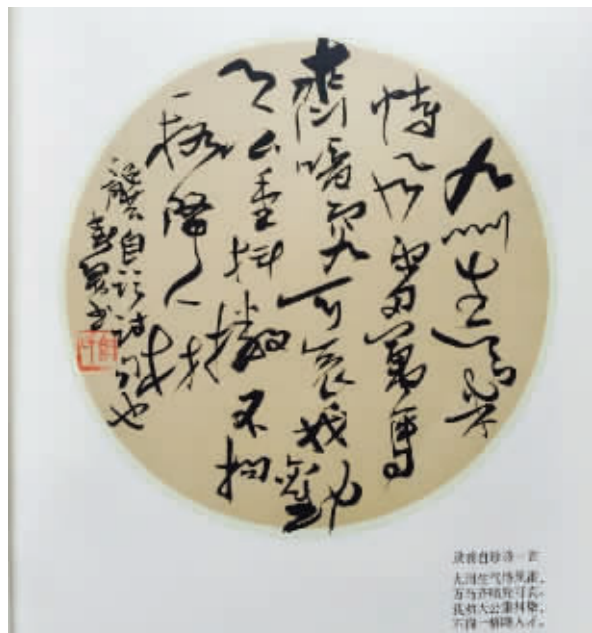 九州生气
恃风雷万马
齐喑究可哀我劝
天公重抖擞不拘
一格降人才
龚自珍诗
书
九州生气恃风雷，
万马齐喑究可哀。
我劝天公重抖擞，
不拘一格降人才。